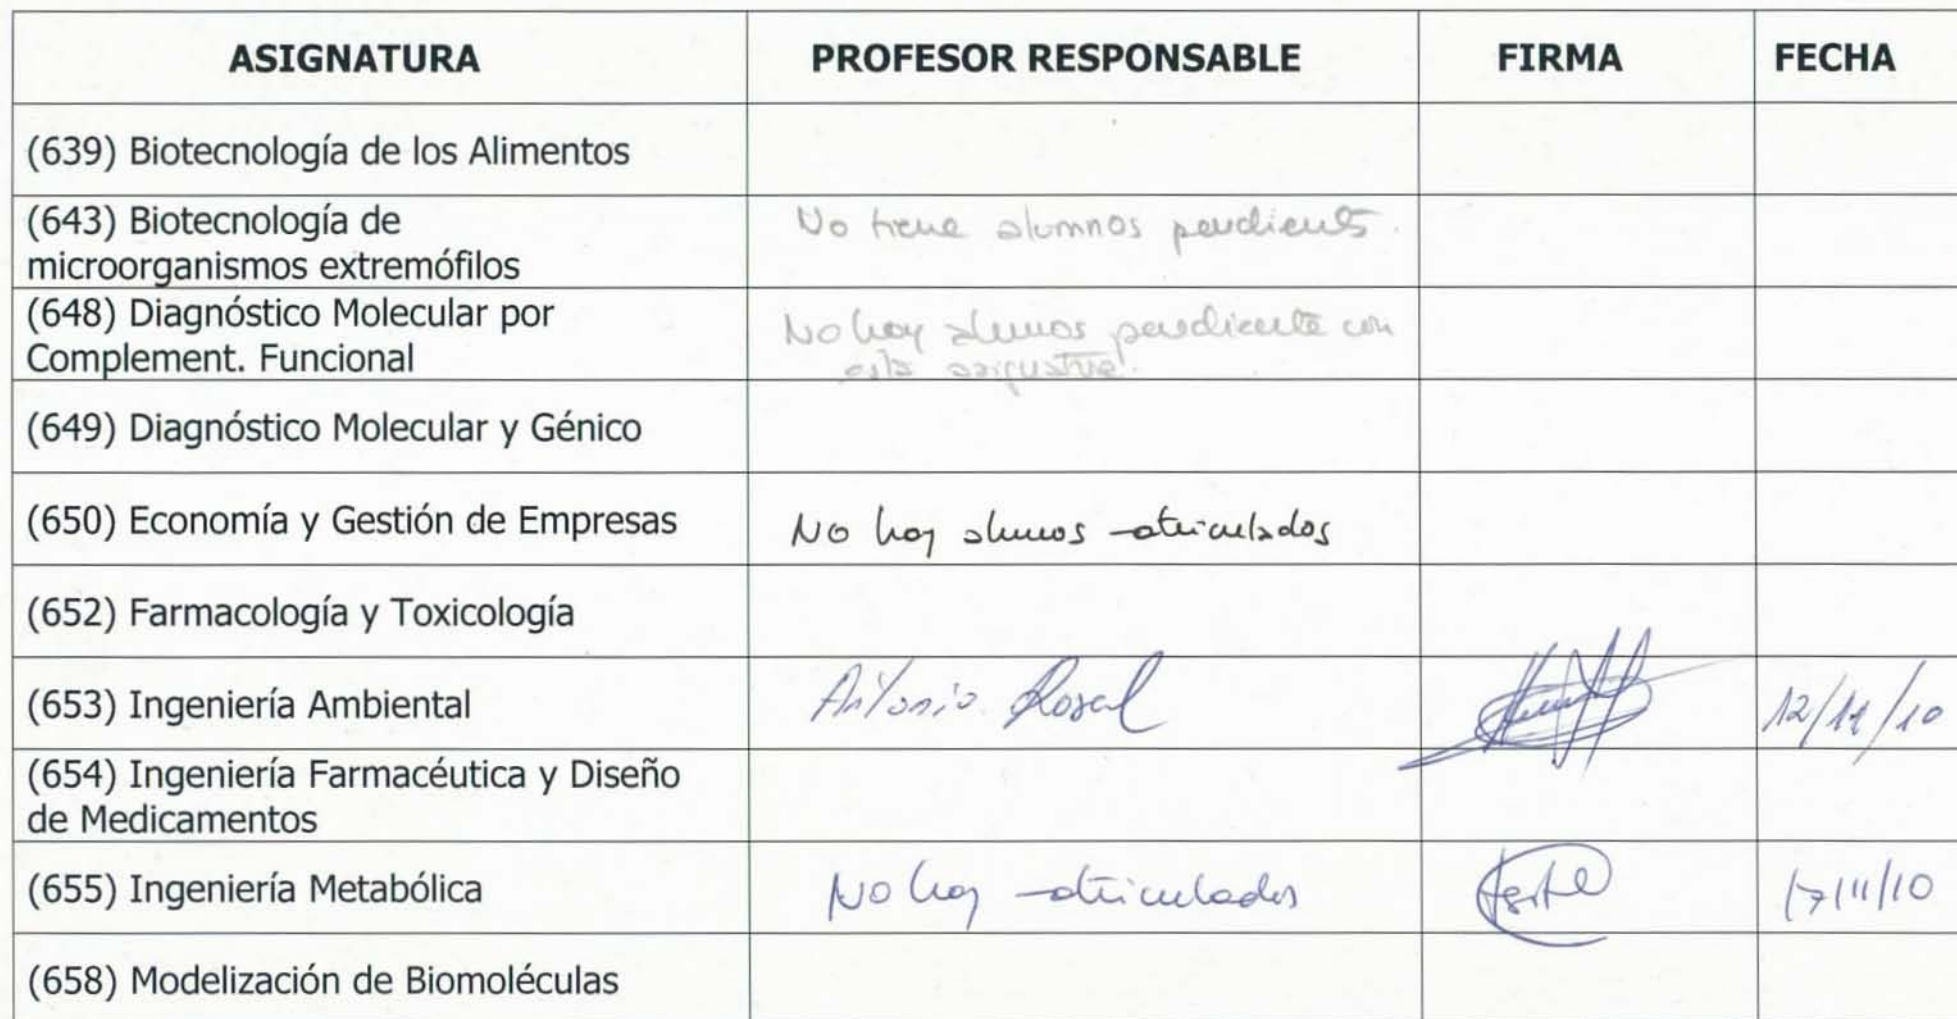 ASIGNATURA PROFESOR RESPONSABLE FIRMA FECHA
(639) Biotecnología de los Alimentos
(643) Biotecnología de
microorganismos extremófilos
No tiene alumnos pendientes.
(648) Diagnóstico Molecular por
Complement. Funcional
No hay alumnos pendiente con
esta asignatura.
(649) Diagnóstico Molecular y Génico
(650) Economía y Gestión de Empresas No hay alumnos matriculados
(652) Farmacología y Toxicología
(653) Ingeniería Ambiental Antonio Rosal 12/11/10
(654) Ingeniería Farmacéutica y Diseño
de Medicamentos
(655) Ingeniería Metabólica No hay matriculados 17/11/10
(658) Modelización de Biomoléculas